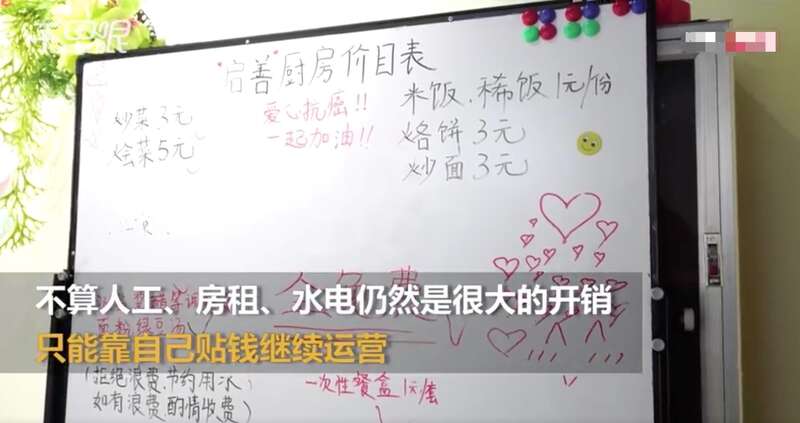 启善厨房价目表
炒菜 3元
烩菜 5元
爱心抗癌!!
一起加油!!
米饭、稀饭 1元/份
烙饼 3元
炒面 3元
全免费
不算人工、房租、水电仍然是很大的开销
只能靠自己贴钱继续运营
(拒绝浪费,节约用水,
如有浪费,酌情收费)
一次性餐盒1元/套